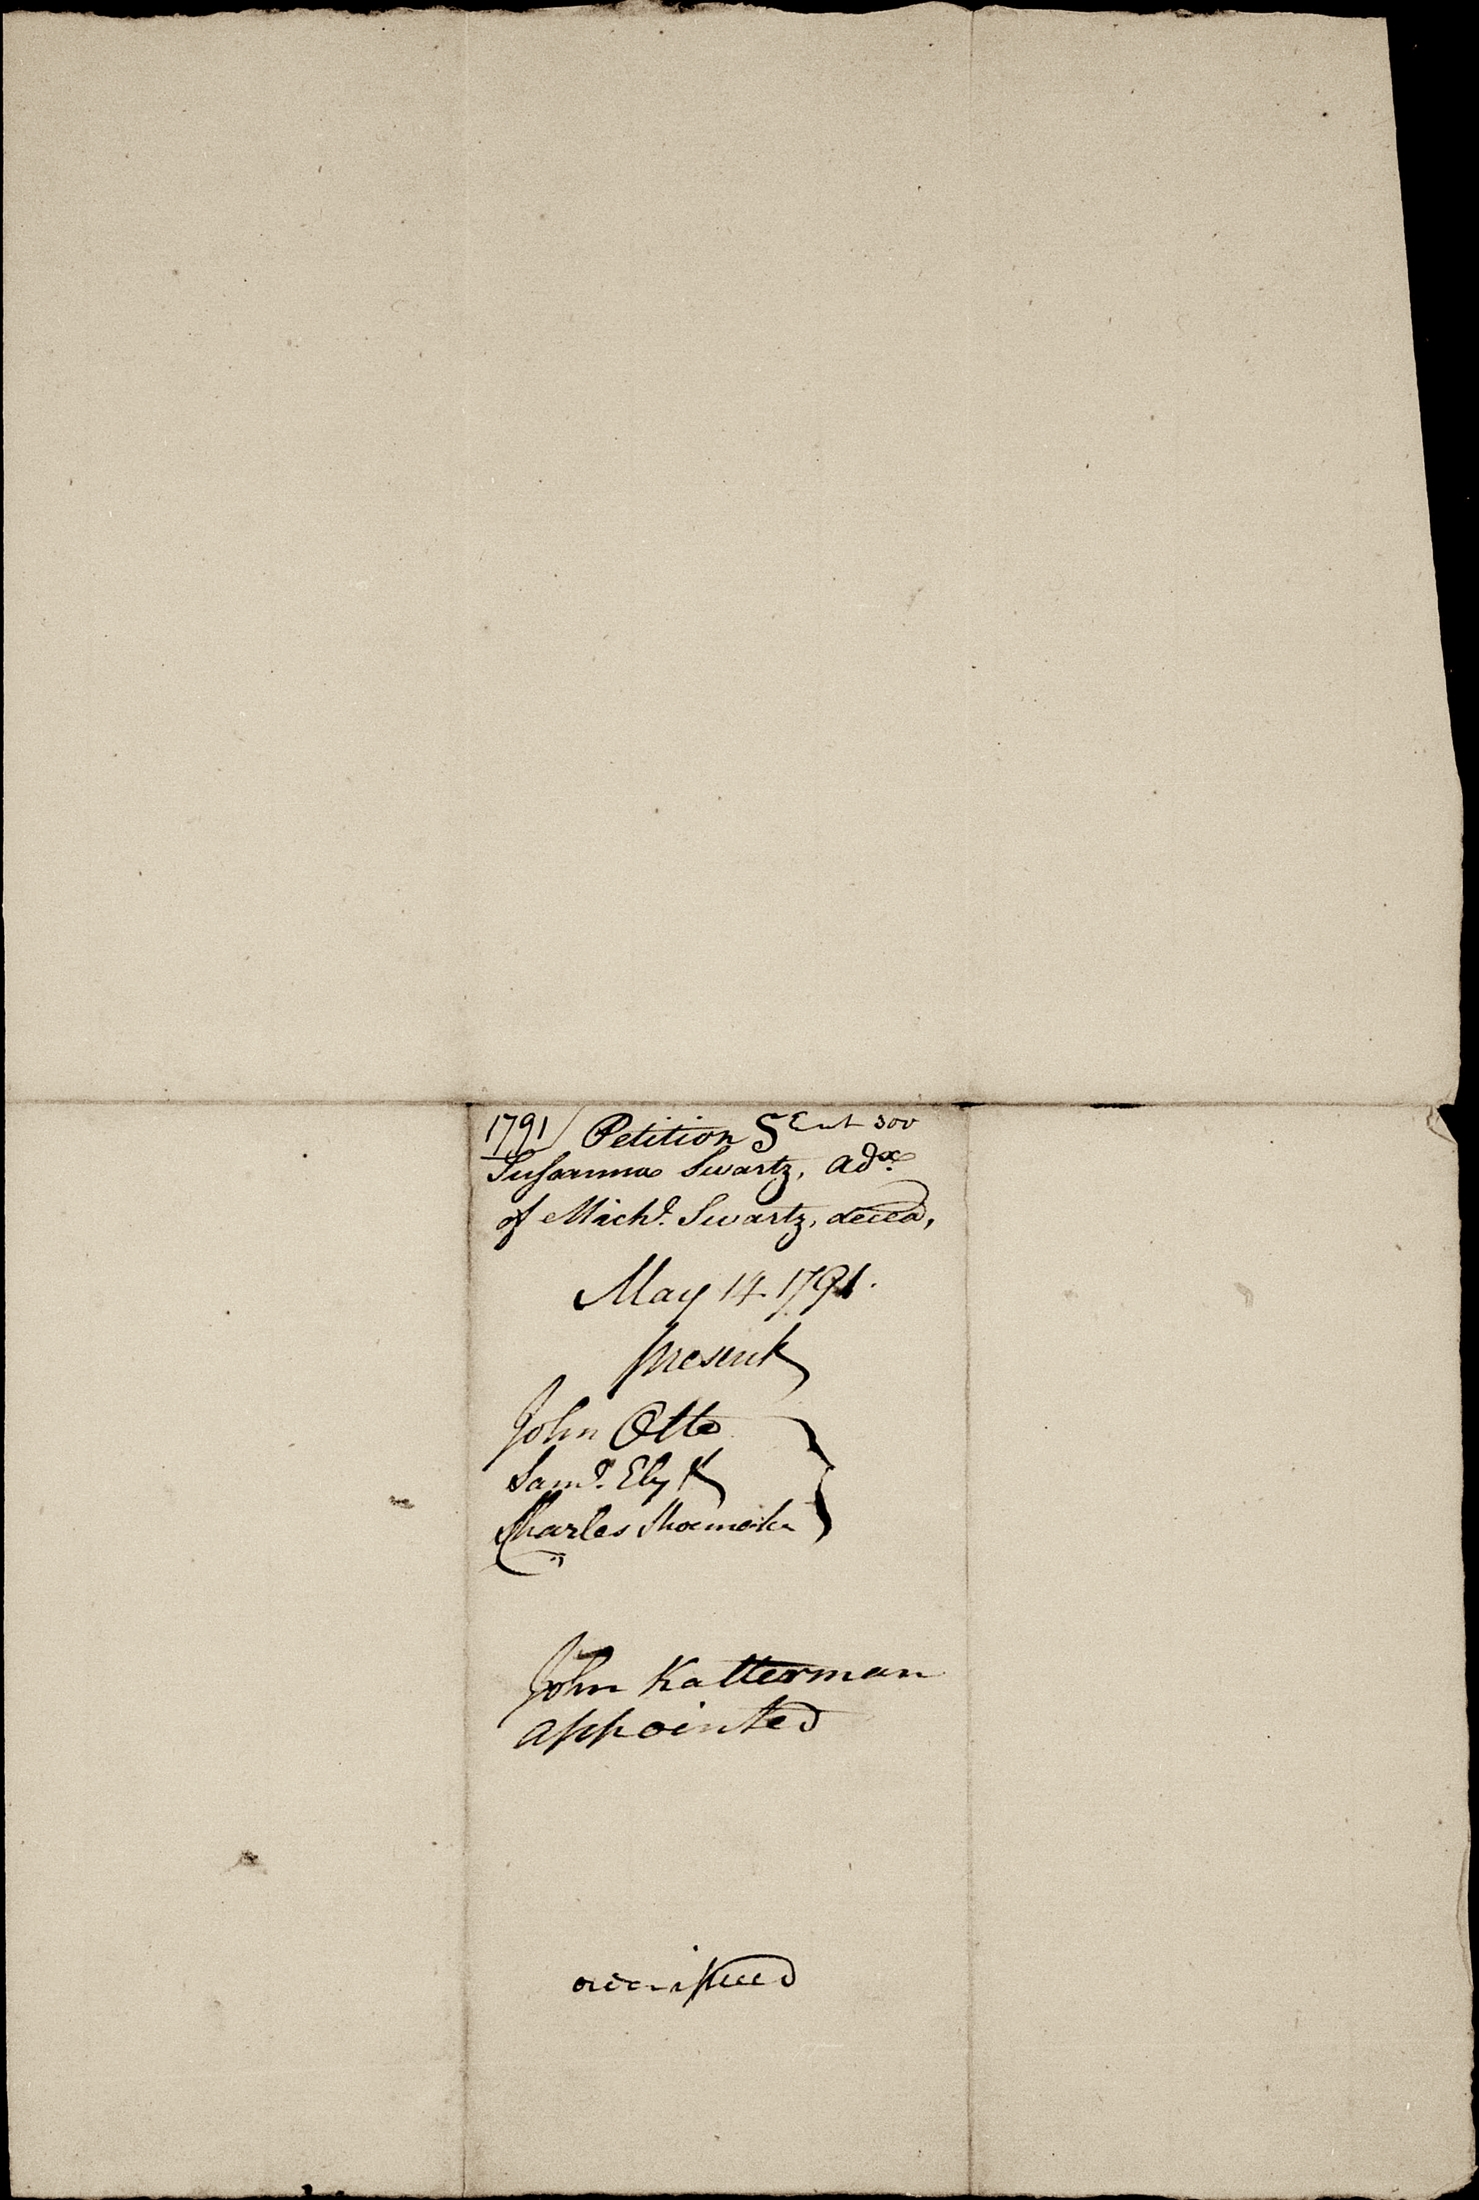 1791 Petition 5 Ent 300
Susanna Swartz, Adx.
of Michl. Swartz, decead,
May 14. 1791.
present
John Otto
Saml. Ely
Charles Shoemaker
John Katterman
appointed
order issued